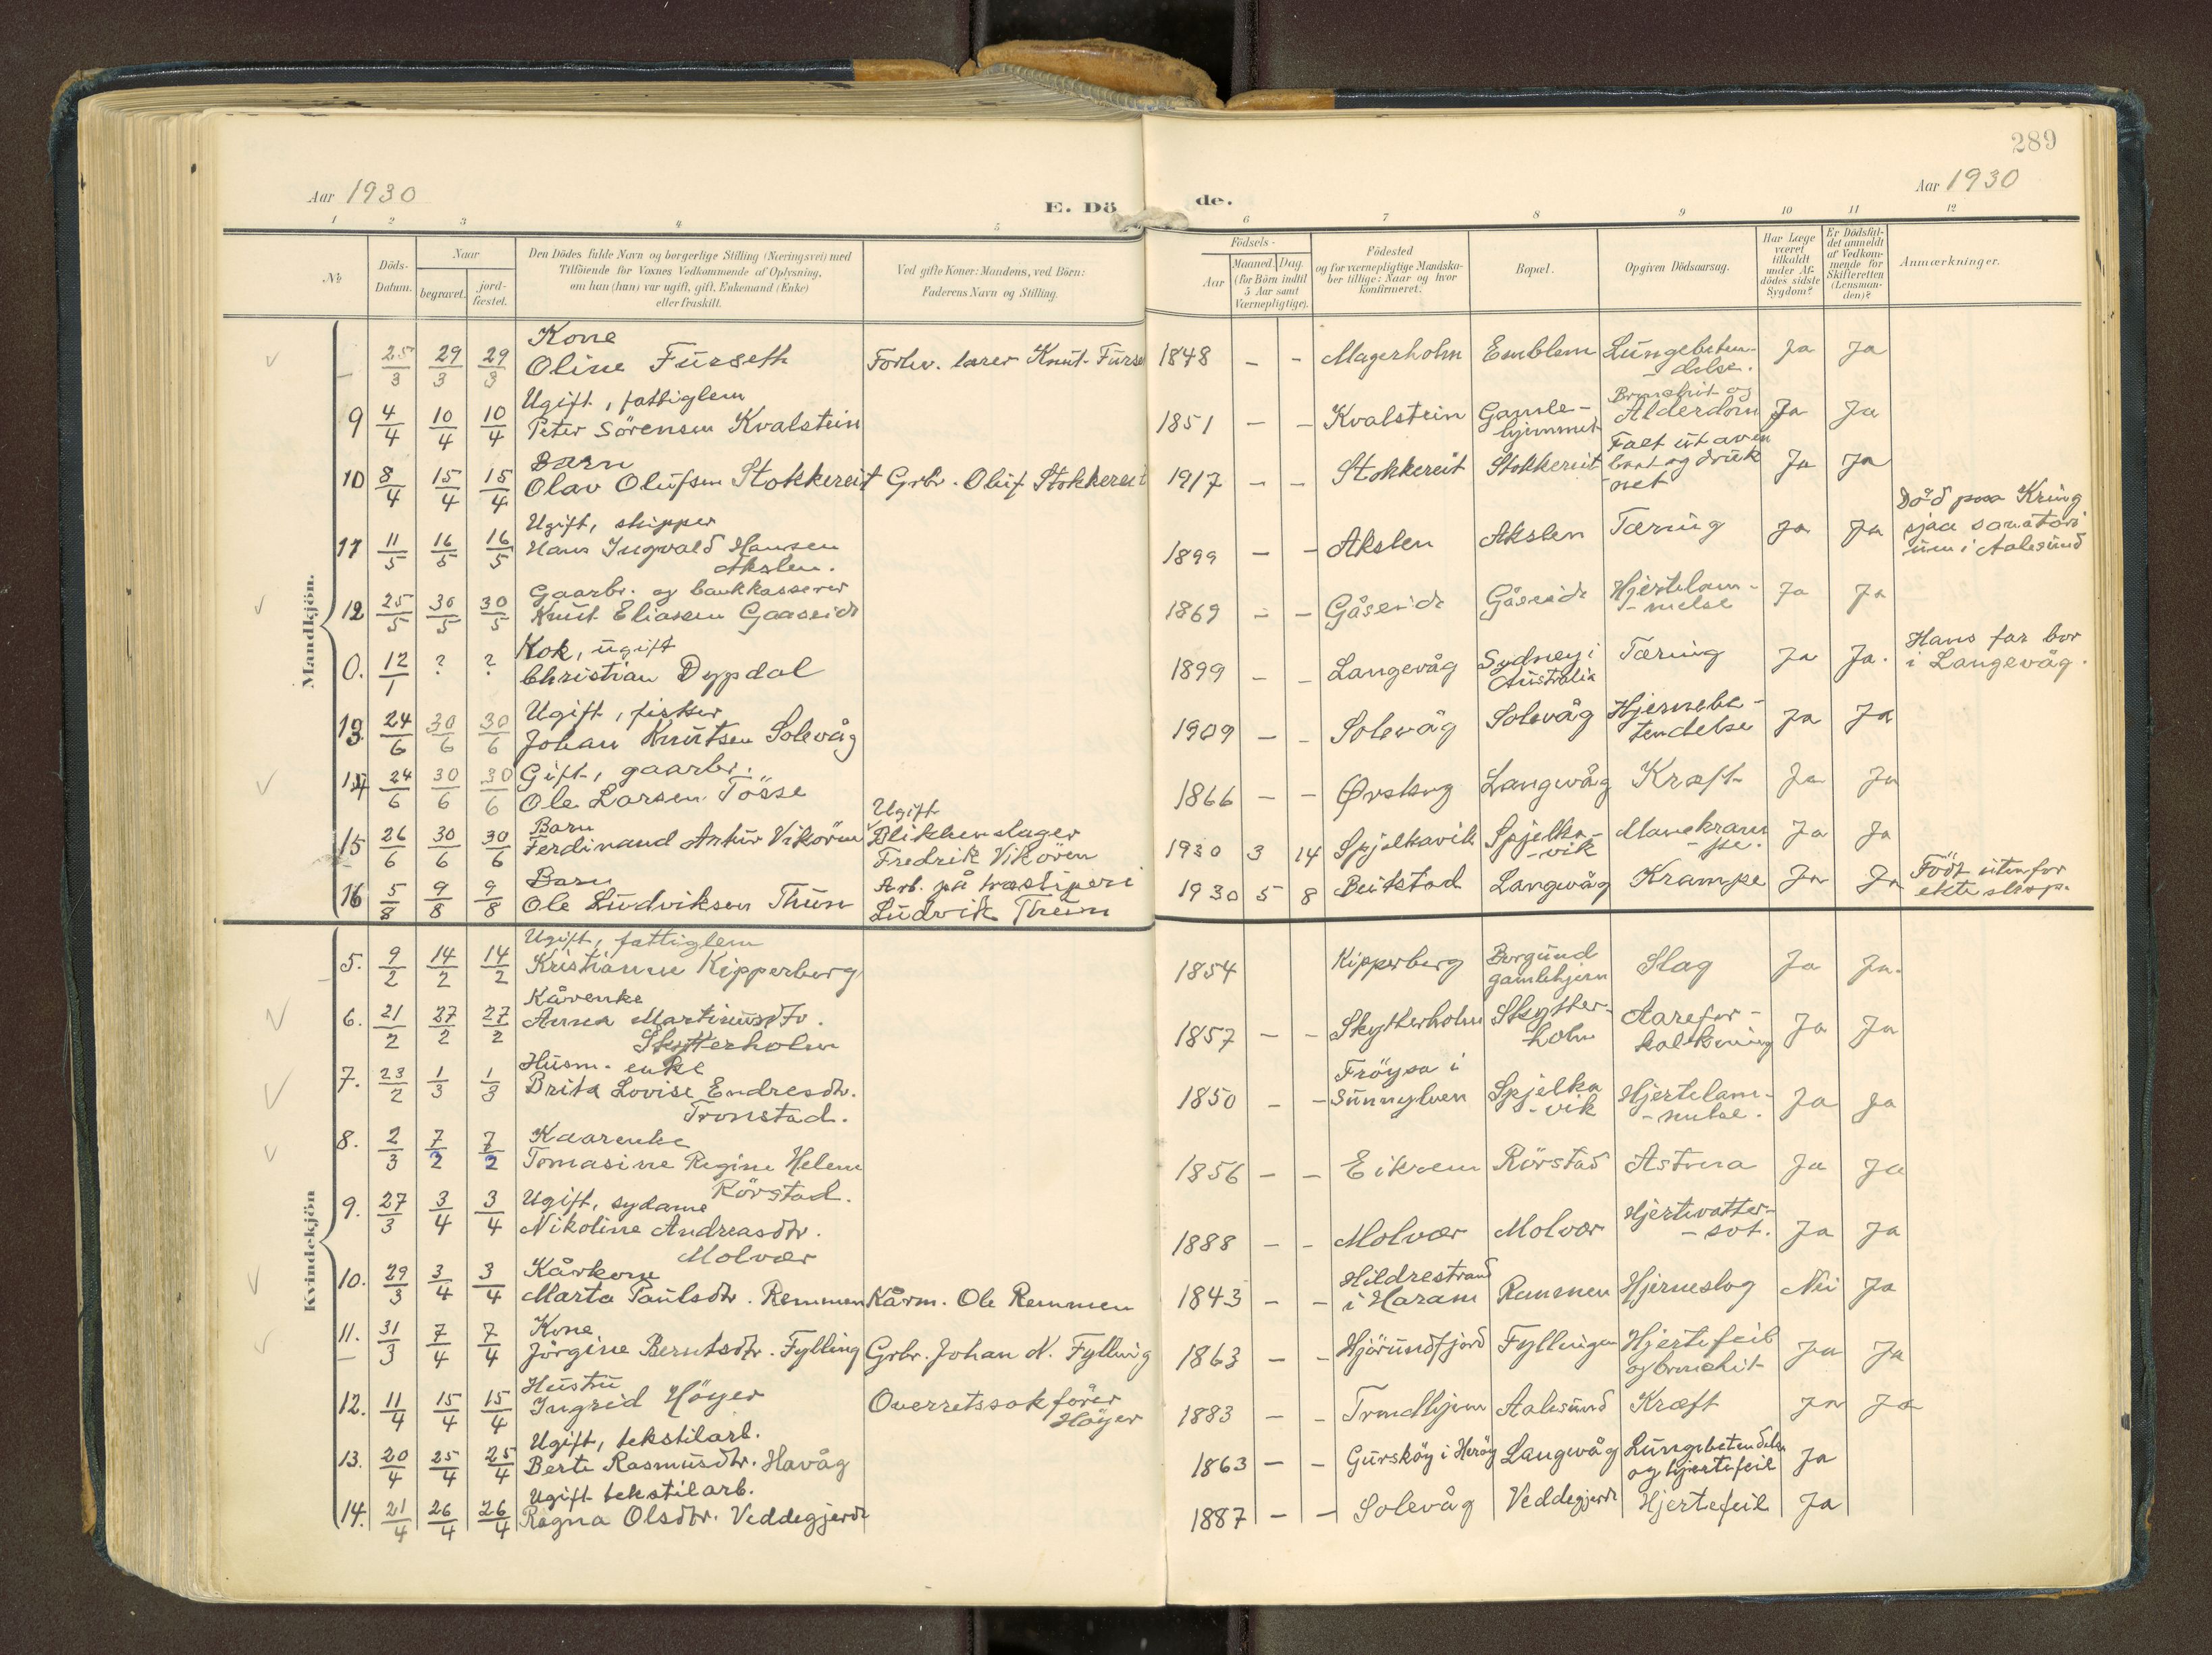 289
Aar 1930
E. Dö
de.
Aar 1930
1 2 3 4 5 6 7 8 9 10 11 12
№
Döds-Datum.
Naar
begravet.
jord-fæstet.
Den Dödes fulde Navn og borgerlige Stilling (Næringsvei) med
Tilföiende for Voxnes Vedkommende af Oplysning,
om han (hun) var ugift, gift, Enkemand (Enke)
eller fraskilt.
Ved gifte Koner: Mandens, ved Börn:
Faderens Navn og Stilling.
Födsels-
Aar
Maaned. Dag.
(for Börn indtil
5 Aar samt
Værnepligtige).
Födested
og for værnepligtige Mandska-
ber tillige: Naar og hvor
konfirmeret.
Bopæl.
Opgiven Dödsaarsag.
Har Læge
været
tilkaldt
under Af-
dödes sidste
Sygdom?
Er Dödsfal-
det anmeldt
af Vedkom-
mende for
Skifteretten
(Lensman-
den)?
Anmærkninger.
Mandkjön.
Kone
– 25/3 29/3 29/3 Oline Furseth Forhv. lærer Knut Furse 1848 – – Magerholm Emblem Lungebeten-
delse. Ja Ja
Ugift, fattiglem
9 4/4 10/4 10/4 Peter Sörensen Kvalstein 1851 – – Kvalstein Gamle-
hjemmet Bronchit og
Alderdom Ja Ja
Barn
10 8/4 15/4 15/4 Olav Olufsen Stokkereit Grbr. Oluf Stokkereit 1917 – – Stokkereit Stokkereit Falt ut av en
baat og druk
net Ja Ja
Ugift, skipper
11 11/5 16/5 16/5 Hans Ingvald Hansen
Akslen. 1899 – – Akslen Akslen Tæring Ja Ja Död paa Kring
sjaa sanatori
um i Aalesund
Gaarbr. og bankkasserer
12 25/5 30/5 30/5 Knut Eliassen Gaaseide 1869 – – Gåseide Gåseide Hjertelam-
-melse Ja Ja
Kok, ugift
0. 12/1 ? ? Christian Dypdal 1899 – – Langevåg Sydney i
Australia Tæring Ja Ja. Hans far bor
i Langevåg.
Ugift, fisker
13. 24/6 30/6 30/6 Johan Knutsen Solevåg 1909 – – Solevåg Solevåg Hjernebe-
tendelse Ja Ja
Gift, gaarbr.
14 24/6 30/6 30/6 Ole Larsen Tösse 1866 – – Ørskog Langevåg Kræft Ja Ja
Barn
15 26/6 30/6 30/6 Ferdinand Artur Vikören Ugift
Blikkenslager
Fredrik Vikören 1930 3 14 Spjelkavik Spjelka-
-vik Mavekram
-pe. Ja Ja
Barn
16 5/8 9/8 9/8 Ole Ludviksen Thun Arb. på træsliperi
Ludvik Thun 1930 5 8 Beitstad Langevåg Krampe Ja Ja Född utenfor
ekteskap.
Kvindekjön
Ugift, fattiglem
5. 9/2 14/2 14/2 Kristianne Kipperberg 1854 Kipperberg Borgund
gamlehjem Slag Ja Ja.
Kårenke
6. 21/2 27/2 27/2 Anna Martinusdtr.
Skytterholm 1857 – – Skytterholm Skytter-
holm Aarefor-
kalkning Ja Ja
Husm. enke
7. 23/2 1/3 1/3 Brita Lovise Endresdtr.
Tronstad. 1850 – – Fröysa i
Sunnylven Spjelka
-vik Hjertelam-
-melse. Ja Ja
Kaarenke
8. 2/3 7/2 7/2 Tomasine Regine Helene
Rörstad. 1856 – – Eikrem Rörstad Astma Ja Ja
Ugift, sydame
9. 27/3 3/4 3/4 Nikoline Andreasdtr.
Molvær 1888 – – Molvær Molvær Hjertevatter-
-sot. Ja Ja
Kårkone
10. 29/3 3/4 3/4 Marta Paulsdtr. Remmen Kårm. Ole Remmen 1843 – – Hildrestrand
i Haram Remmen Hjerneslag Nei Ja
Kone
11. 31/3 7/4 7/4 Jörgine Berntsdtr. Fylling Grbr. Johan N. Fylling 1863 – – Hjörundfjord Fyllingen Hjertefeil
og bronchit Ja Ja
Hustru
12. 11/4 15/4 15/4 Ingrid Höyer Overretssakförer
Höyer 1883 – – Trondhjem Aalesund Kræft Ja Ja
Ugift, tekstilarb.
13. 20/4 25/4 25/4 Berte Rasmusdtr. Havåg 1863 – – Gurskøy i Herøy Langevåg Lungebetendelse
og hjertefeil Ja
Ugift tekstilarb.
14. 21/4 26/4 26/4 Ragna Olsdtr. Veddegjerde 1887 – – Solevåg Veddegjerde Hjertefeil Ja